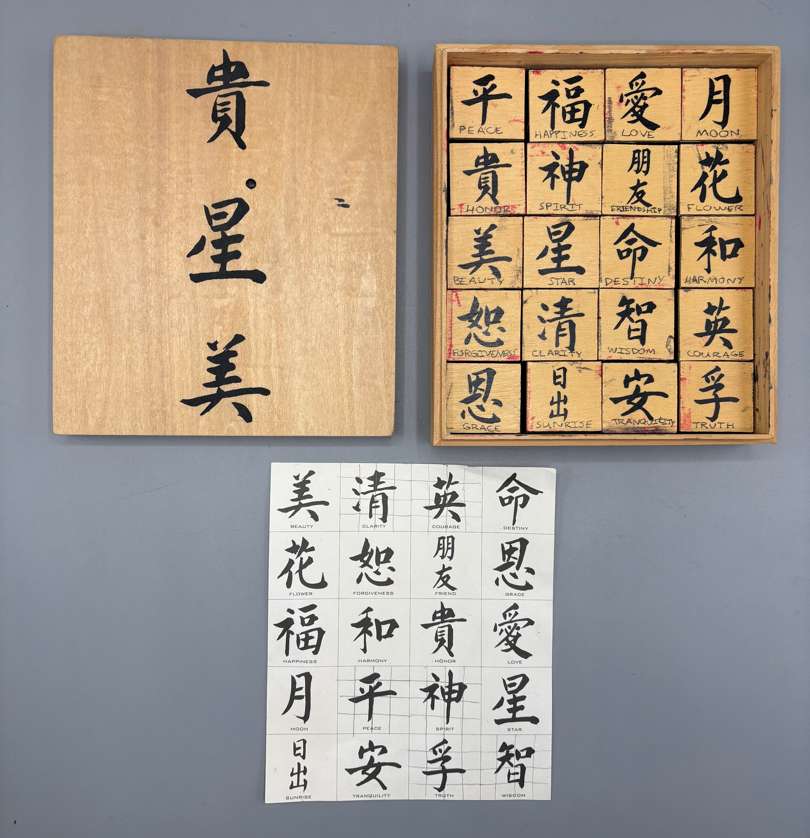 貴
星
美
平 福 愛 月
PEACE HAPPINESS LOVE MOON
貴 神 朋友 花
HONOR SPIRIT FRIENDSHIP FLOWER
美 星 命 和
BEAUTY STAR DESTINY HARMONY
恕 清 智 英
FORGIVENESS CLARITY WISDOM COURAGE
恩 日出 安 孚
GRACE SUNRISE TRANQUILITY TRUTH
美 清 英 命
BEAUTY CLARITY COURAGE DESTINY
花 恕 朋友 恩
FLOWER FORGIVENESS FRIEND GRACE
福 和 貴 愛
HAPPINESS HARMONY HONOR LOVE
月 平 神 星
MOON PEACE SPIRIT STAR
日出 安 孚 智
SUNRISE TRANQUILITY TRUTH WISDOM